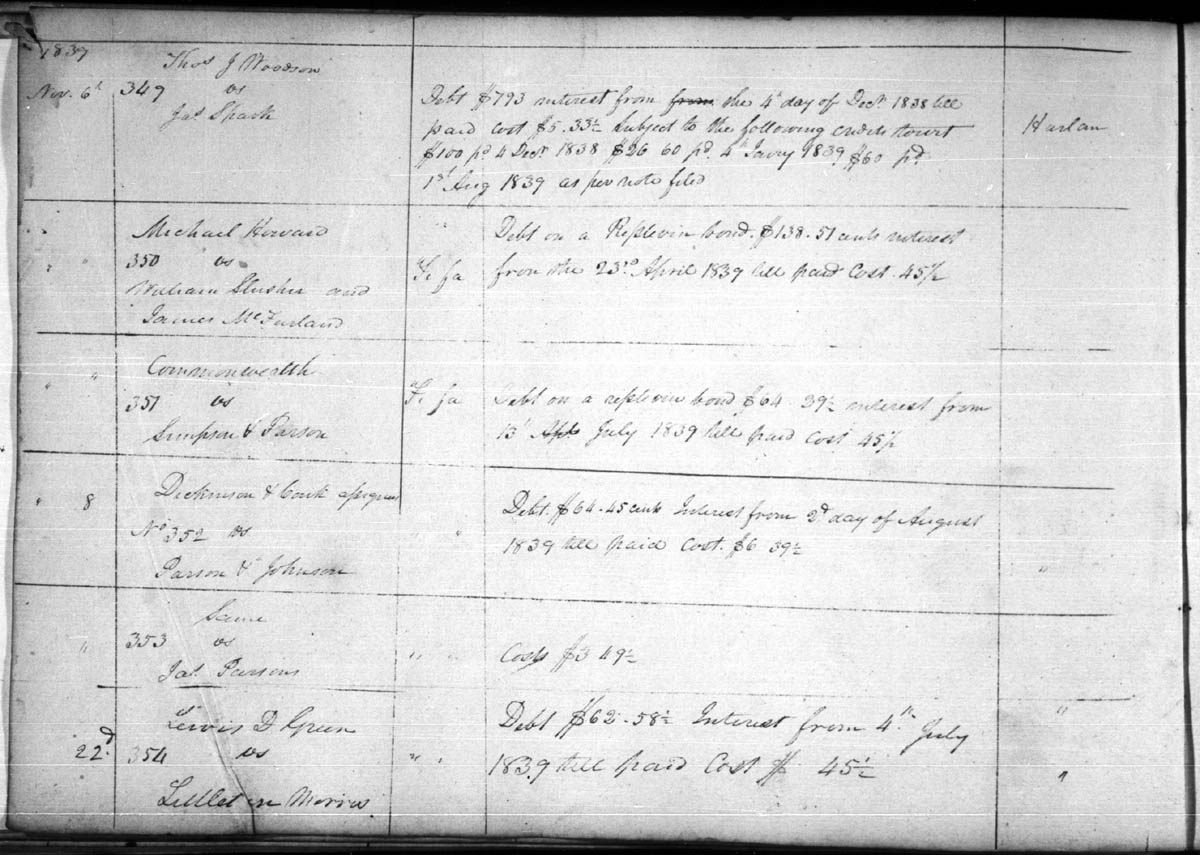 1839
Thos J Woodson
Nov. 6th 349 vs
Jas.
Debt $793 interest from from the 4th day of Decr 1838 till
paid cost $5.33½ Subject to the following credits towit
$100 pd 4 Decr 1838 $26 60 pd. 4th Janry 1839 $60 pd
1st Aug 1839 as per note filed
Harlan
" " Michael Howard
350 vs
William Slusher and
James McFarland
Fi fa
Debt on a Replevin bond. $138.51 cents interest
from the 23rd April 1839 till paid Cost 45½
" " Commonwealth
351 vs
Simpson & Parson
Fi fa
Debt on a replevin bond $64 39½ interest from
13th Apl July 1839 till paid Cost 45½
" 8 Dickinson & assignees
No 352 vs
Parson & Johnson
" "
Debt. $64.45 cents Interest from 2d day of August
1839 till paid Cost. $6 39½
"
Same
" 353 vs
Jas. Parsons
" "
Costs $3 49½
"
Lewis D Green
22d 354 vs
Morris
" "
Debt $62.58½ Interest from 4th July
1839 till paid Cost $ 45½
"